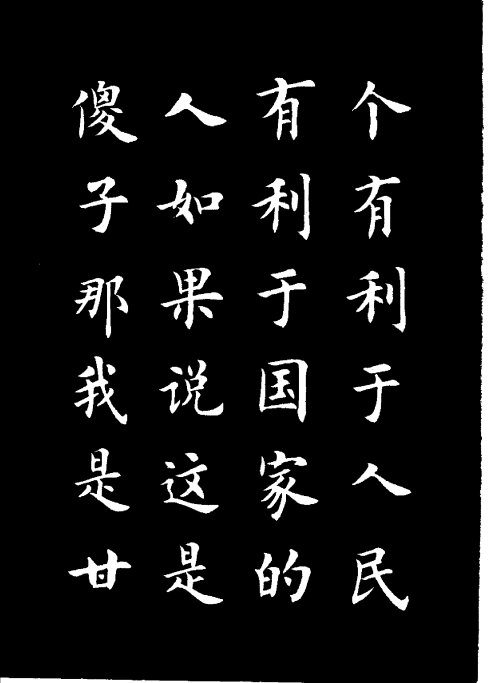 个有利于人民
有利于国家的
人如果说这是
傻子那我是甘